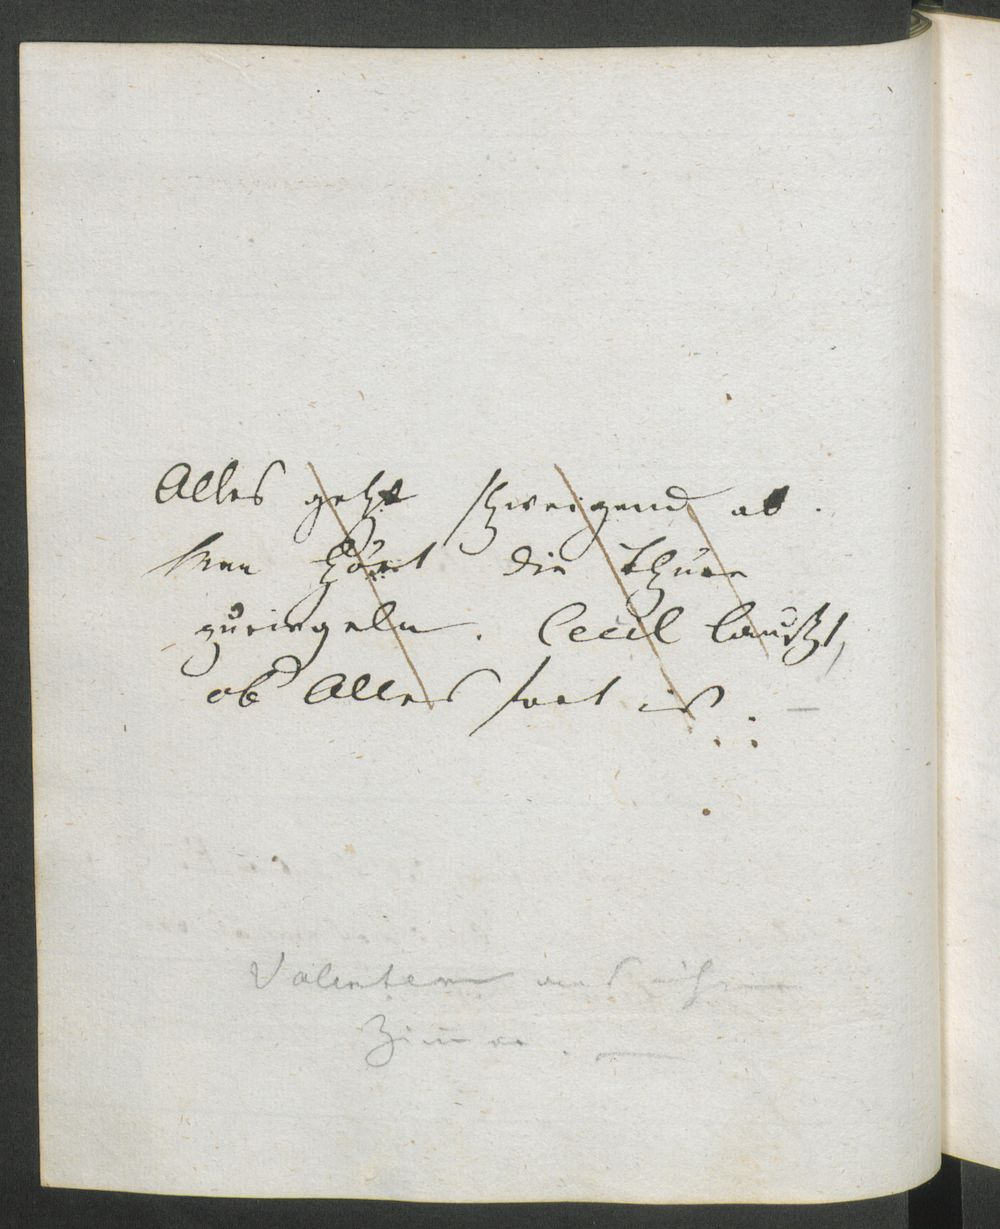 Alles geht schweigend ab.
Man hört die Thüre
zuriegeln. Cecil lauscht,
ob Alles fort ist. –
Valentin aus ihrem
Zimmer. —